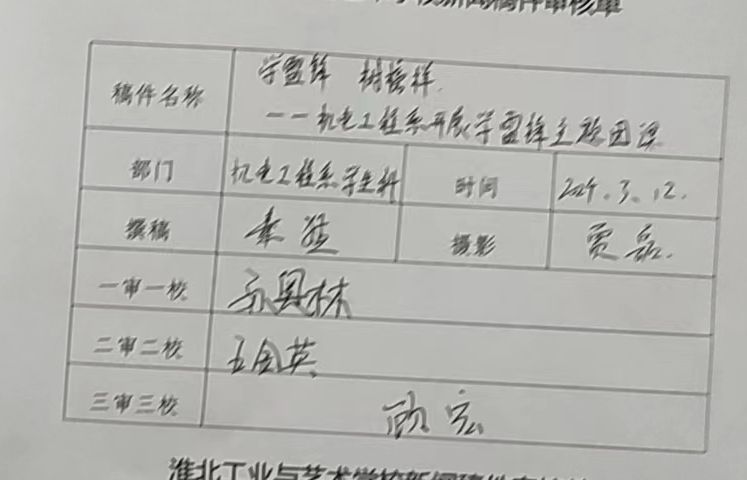 新闻稿件审核单
稿件名称 学雷锋 树榜样
——机电工程系开展学雷锋主题团课
部门 机电工程系学生科 时间 3.12.
撰稿 摄影 贾磊
一审一校
二审二校 王全英
三审三校
淮北工业与艺术学校新闻稿件审核单